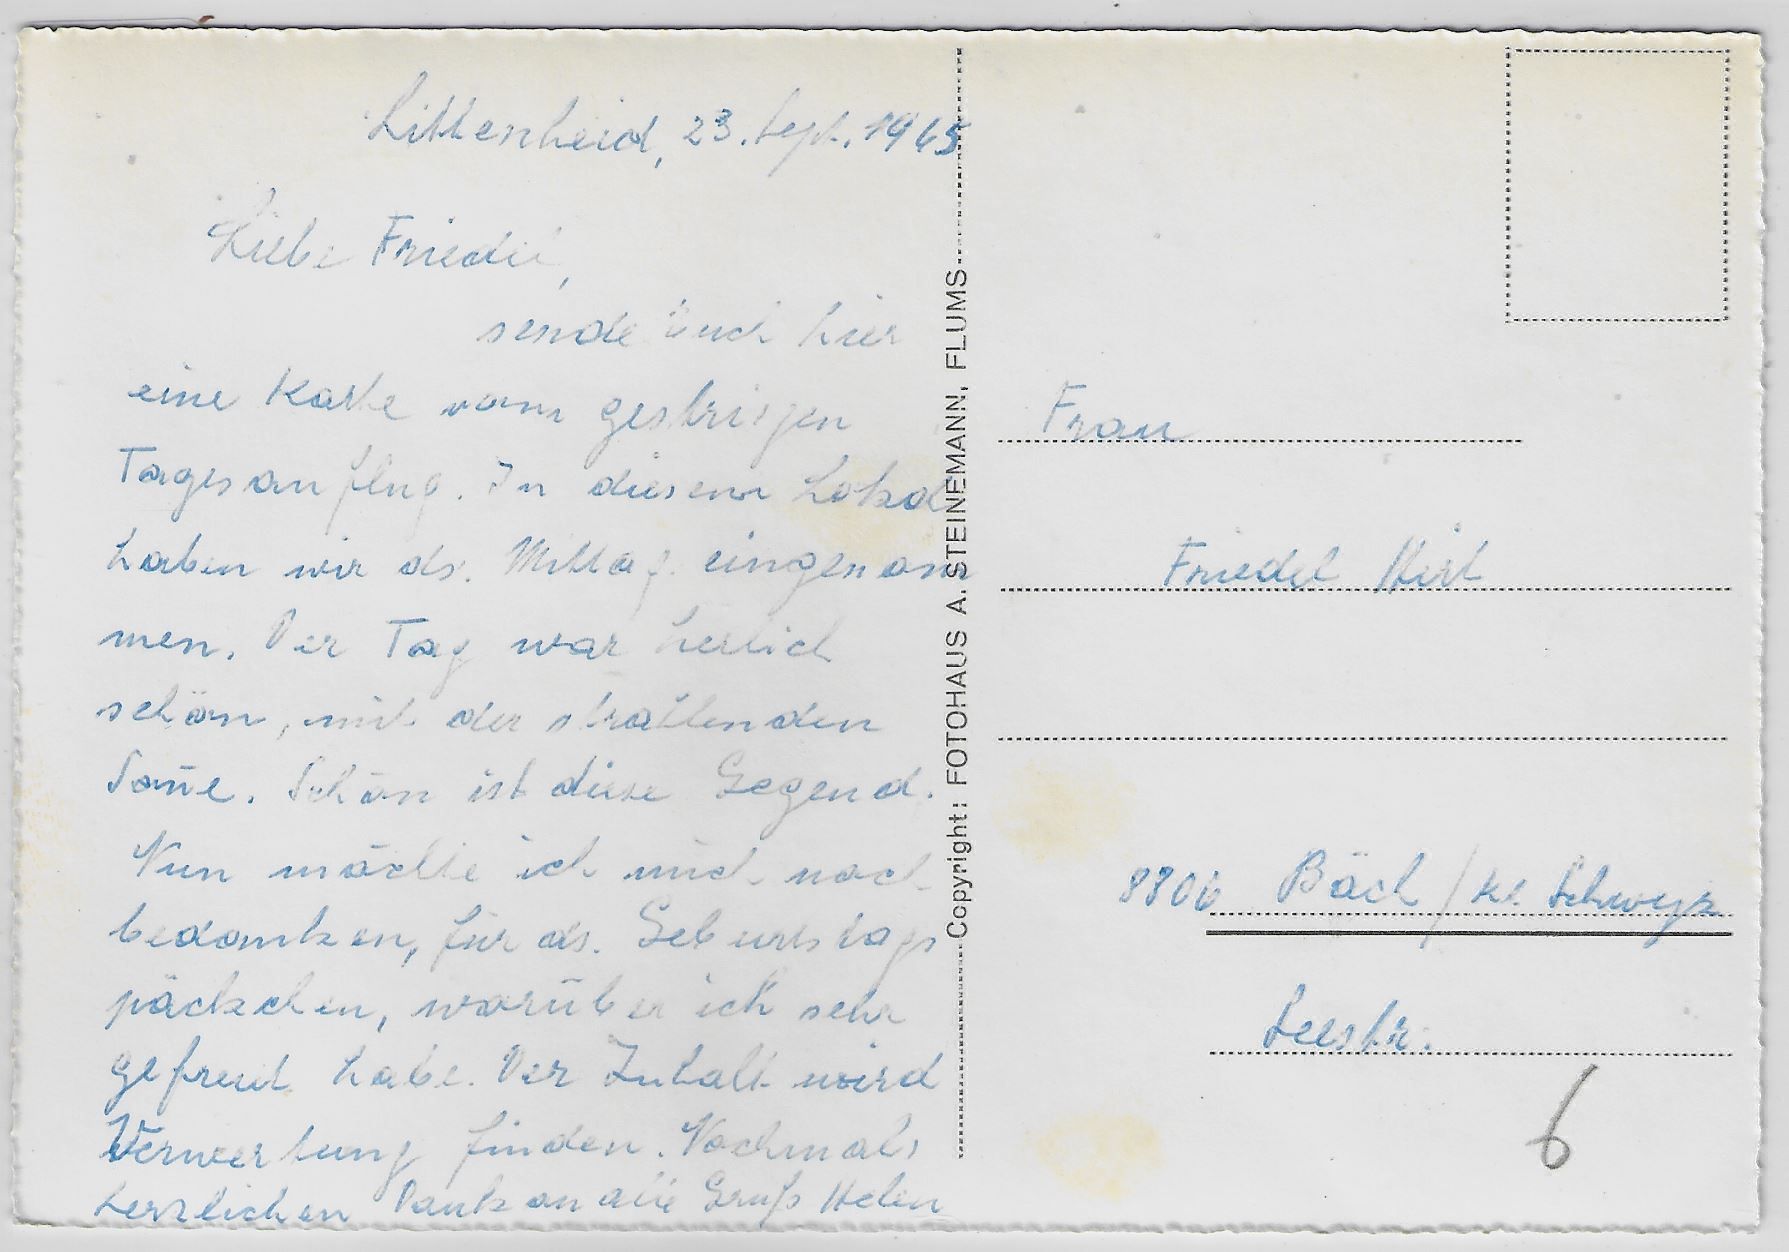 Littenheid, 23. Sept. 1965
Liebe Friedel,
sende Euch hier
eine Karte vom gestrigen
Tagesausflug. In diesem Lokal
haben wir ds. Mittag. eingenom
men. Der Tag war herlich
schön, mit der strahlenden
Soñe. Schön ist diese Gegend.
Nun möchte ich mich noch
bedanken, für ds. Geburtstags
päckchen, worüber ich sehr
gefreut habe. Der Inhalt wird
Verwertung finden. Nochmals
herzlichen Dank an alle Gruß Helen
Copyright: FOTOHAUS A. STEINEMANN, FLUMS
Frau
Friedel Hirt
8806 Bäch / Kt. Schwyz
Seestr.
6